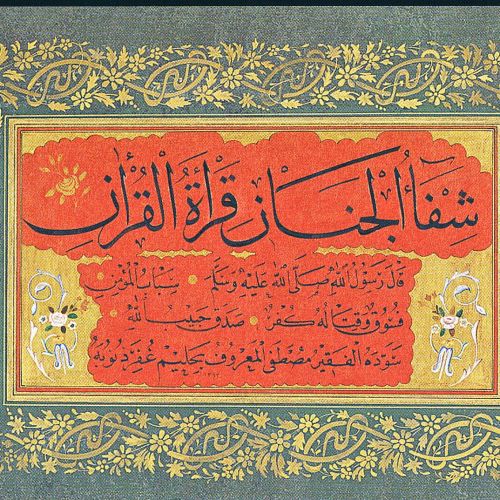 شفاء الجنان قراءة القرآن
قال رسول الله صلى الله عليه وسلم سباب المؤمن
فسوق وقتاله كفر صدق حبيب الله
سوده الفقير مصطفى المعروف بحليم غفر ذنوبه